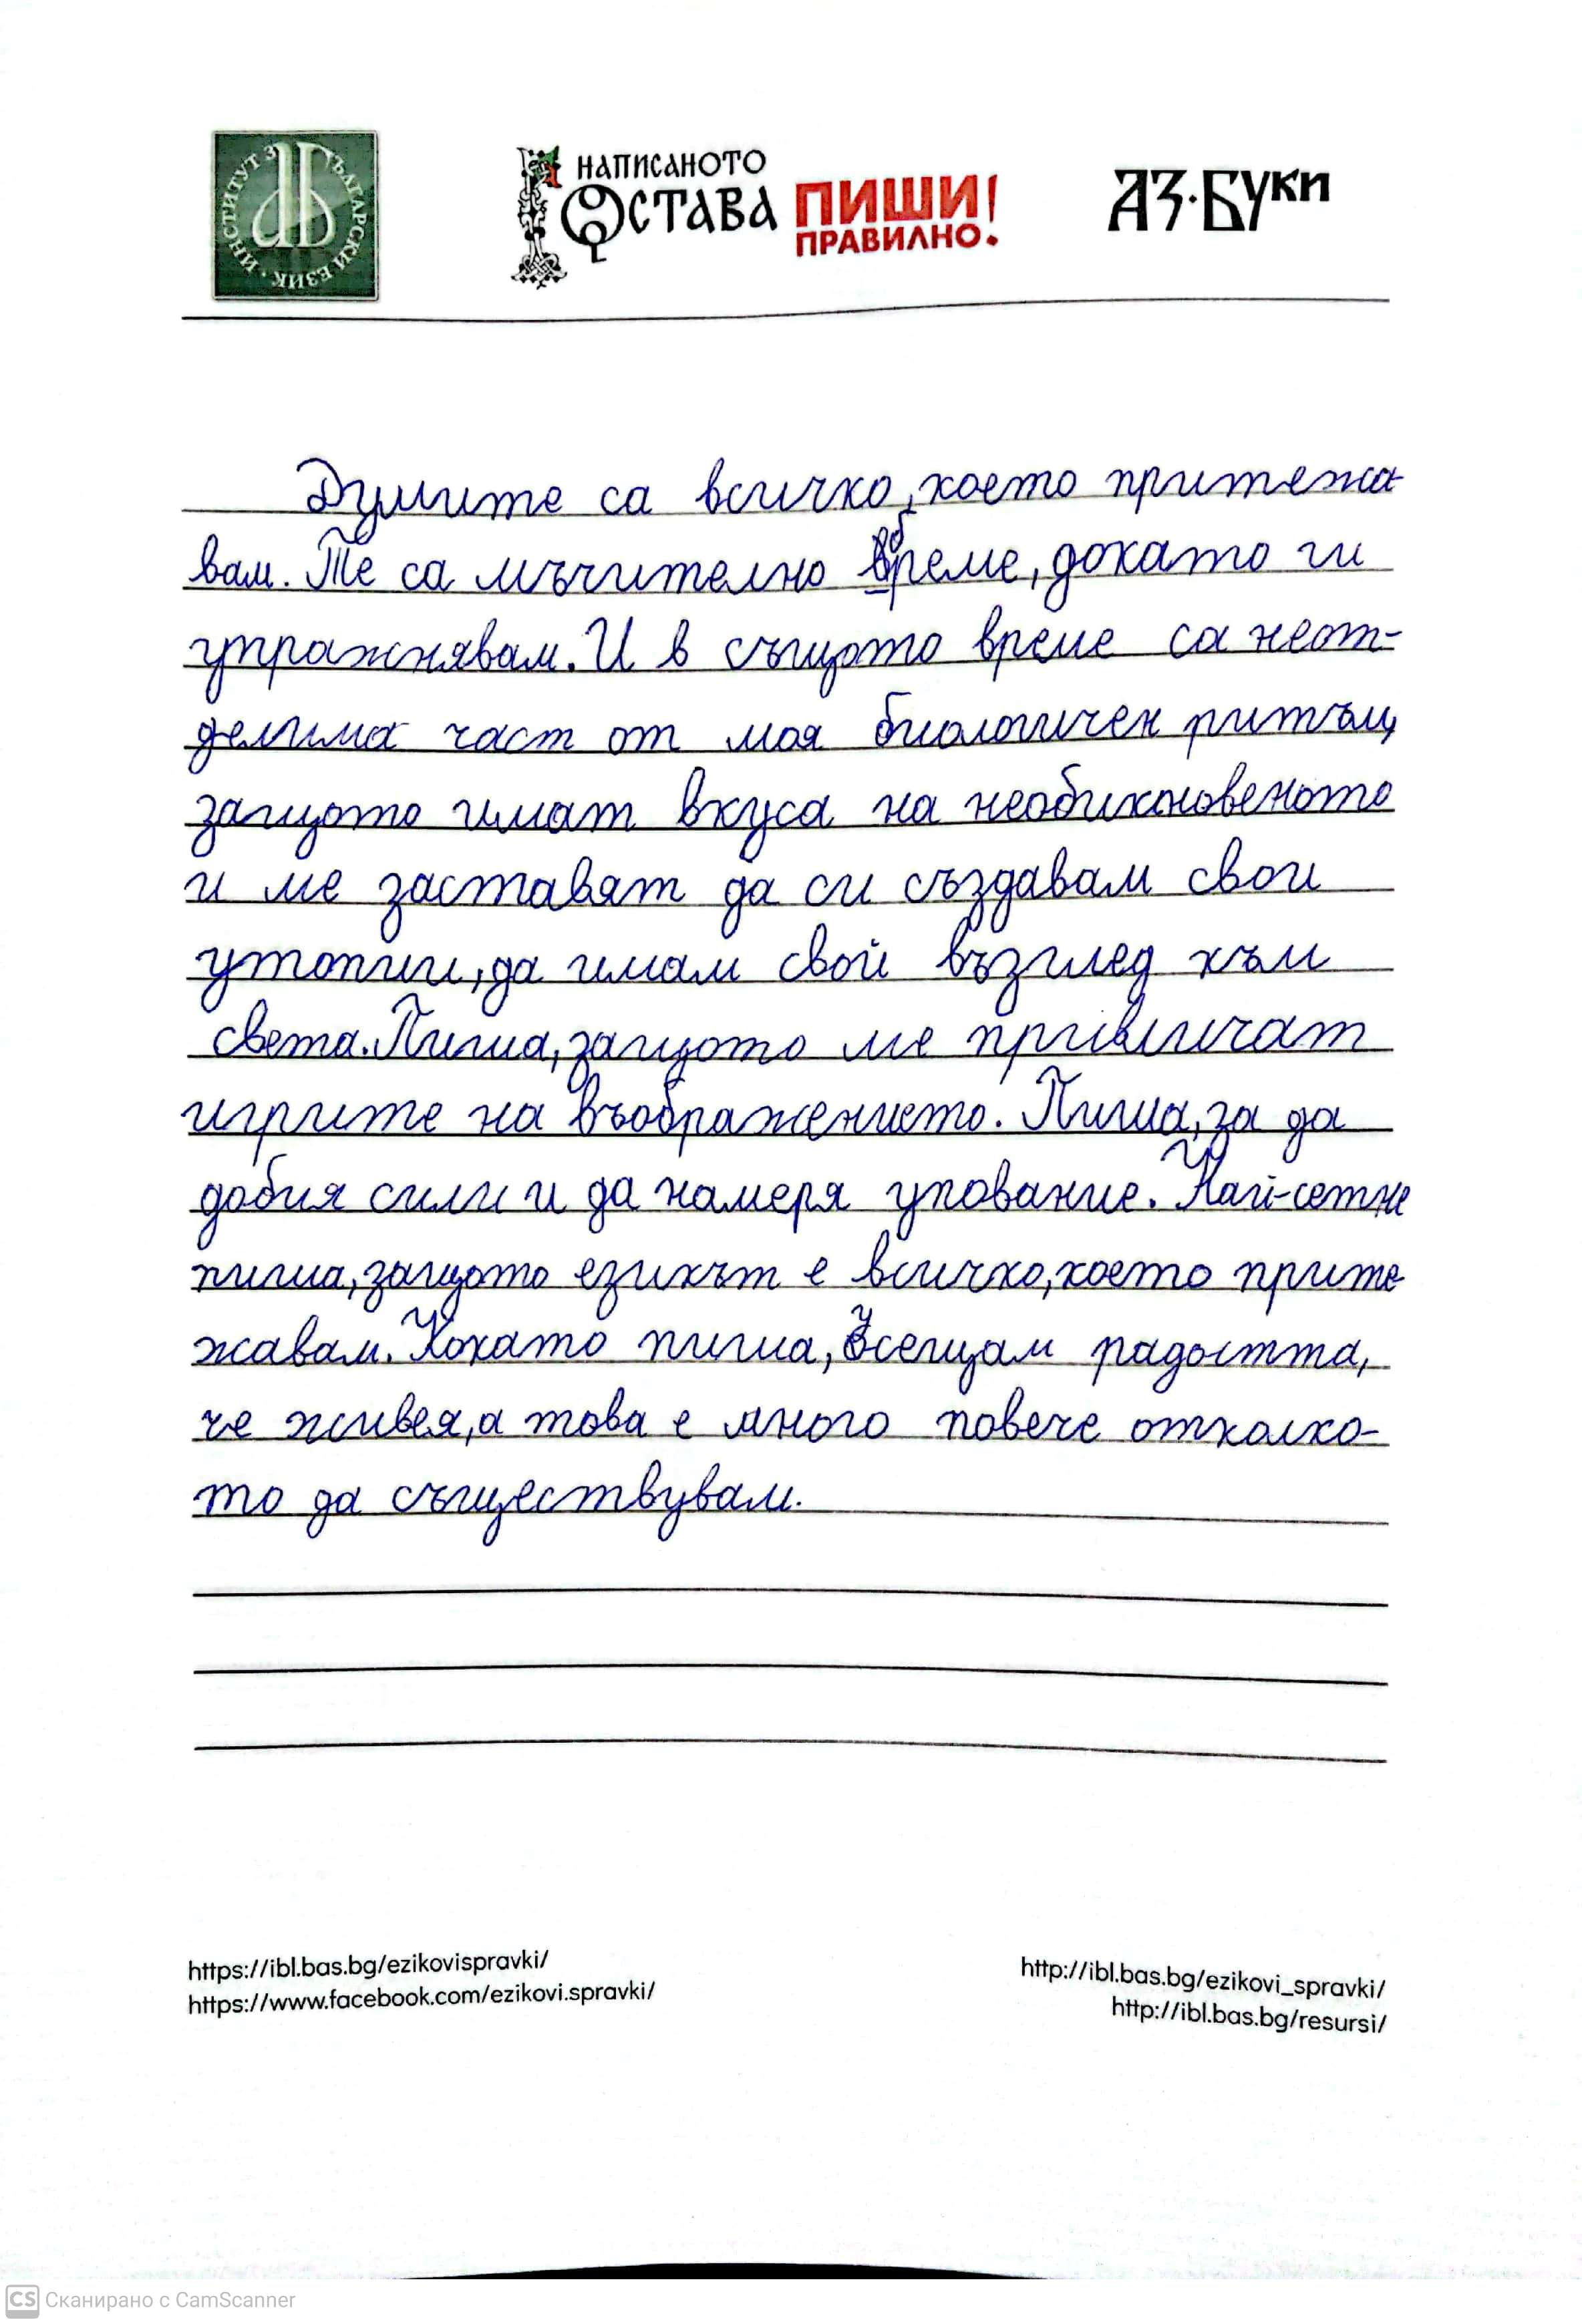 ИНСТИТУТ ЗА БЪЛГАРСКИ ЕЗИК
НАПИСАНОТО
ОСТАВА
ПИШИ!
ПРАВИЛНО.
АЗ·БУКИ
Думите са всичко, което притежа-
вам. Те са мъчително бреме, докато ги
упражнявам. И в същото време са неот-
делима част от моя биологичен ритъм,
защото имат вкуса на необикновеното
и ме заставят да си създавам свои
утопии, да имам свой възглед към
света. Пиша, защото ме привличат
игрите на въображението. Пиша, за да
добия сили и да намеря упование. Най-сетне
пиша, защото езикът е всичко, което прите
жавам. Когато пиша, усещам радостта,
че живея, а това е много повече отколко-
то да съществувам.
https://ibl.bas.bg/ezikovispravki/
https://www.facebook.com/ezikovi.spravki/
http://ibl.bas.bg/ezikovi_spravki/
http://ibl.bas.bg/resursi/
CS Сканирано с CamScanner